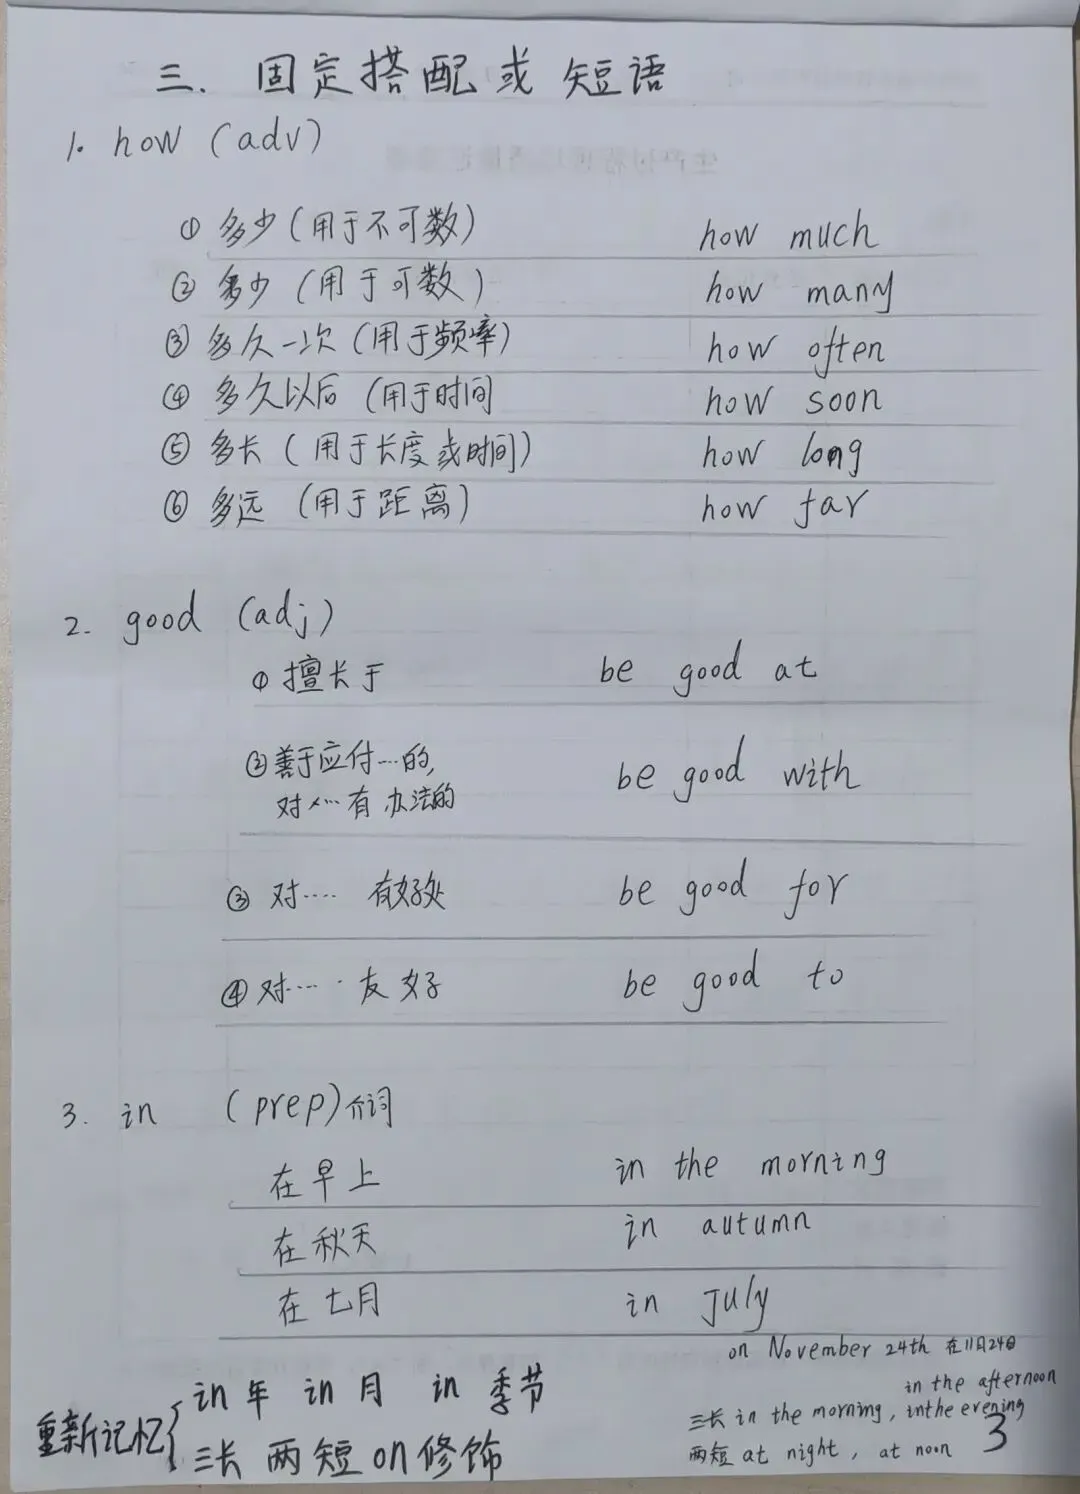 三. 固定搭配或 短语
1. how (adv)
① 多少(用于不可数) how much
② 多少 (用于可数) how many
③ 多久一次 (用于频率) how often
④ 多久以后 (用于时间 how soon
⑤ 多长 (用于长度或时间) how long
⑥ 多远 (用于距离) how far
2. good (adj)
① 擅长于 be good at
② 善于应付…的, be good with
对…有办法的
③ 对…… 有好处 be good for
④ 对…… 友好 be good to
3. in (prep)介词
在早上 in the morning
在秋天 in autumn
在七月 in July
on November 24th 在11月24日
in 年 in 月 in 季节
in the afternoon
重新记忆
三长 in the morning, in the evening
三长 两短 on 修饰
两短 at night, at noon
3